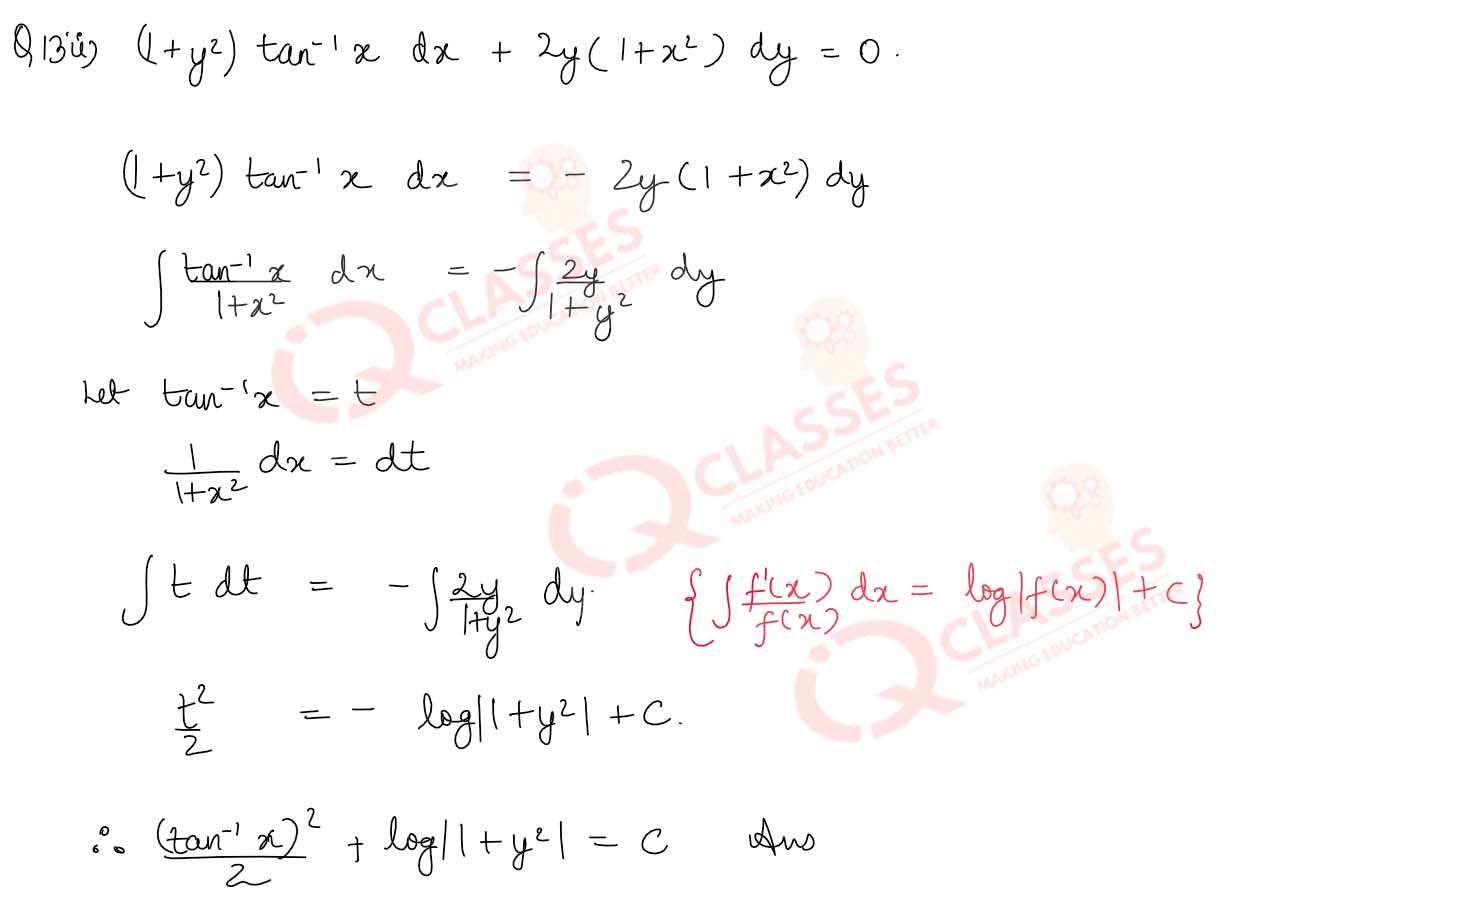 Q13ii) (1+y²) tan⁻¹ x dx + 2y(1+x²) dy = 0.
(1+y²) tan⁻¹ x dx = - 2y(1+x²) dy
∫ tan⁻¹ x / 1+x² dx = -∫ 2y / 1+y² dy
Let tan⁻¹x = t
1 / 1+x² dx = dt
∫ t dt = -∫ 2y / 1+y² dy. {∫ f'(x) / f(x) dx = log|f(x)| + C}
t² / 2 = - log|1+y²| + C.
∴ (tan⁻¹ x)² / 2 + log|1+y²| = C Ans
iQ CLASSES
MAKING EDUCATION BETTER
iQ CLASSES
MAKING EDUCATION BETTER
iQ CLASSES
MAKING EDUCATION BETTER